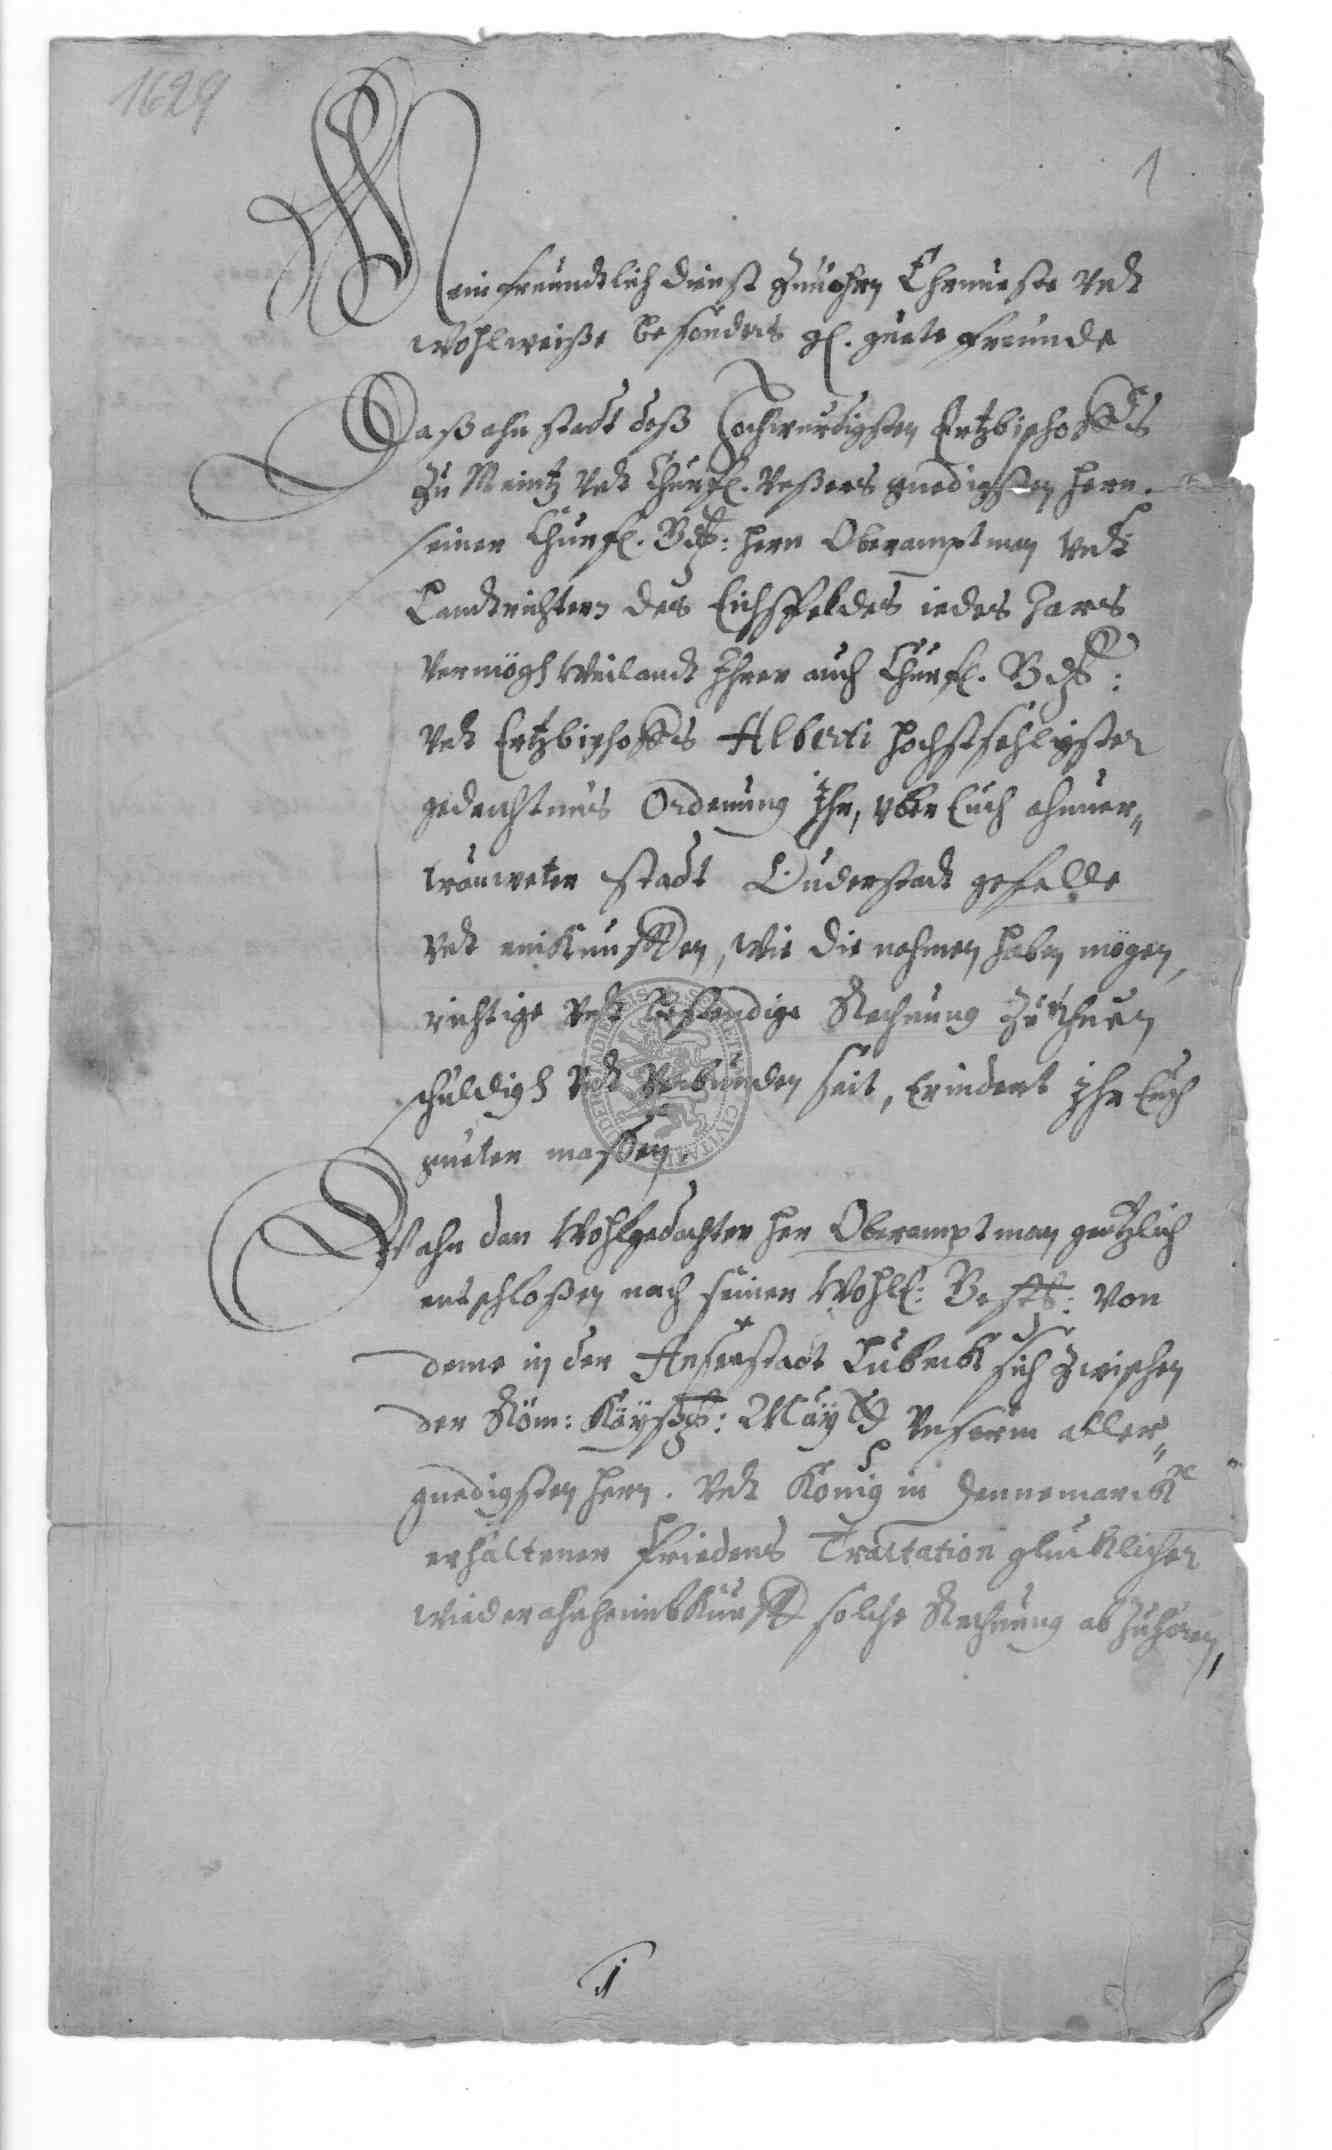 1629
1
Mein freundtlich dienst zuuohrn Ehrnueste vndt
wohlweiße besonders gl. guete freunde
Daß ahn stadt deß Hochwurdigsten Ertzbischoffs
zu Meintz vndt Churfl. vnßers gnedigsten hern.
seiner Churfl. hern Oberamptman vndt
Landtrichtern des Eichsfeldes iedes Jars
vermögh weilandt Ihrer auch Churfl.
vndt Ertzbischoffs Alberti hochstsehligster
gedechtnus Ordenung Ihr, vber Euch ahnuer„
trauweter stadt Duderstadt gefelle
vndt einkunfften, wie die nahmen haben mögen,
richtige vndt bestendige Rechnung zu thuen
schuldigh vndt verbunden seit, Erindert Ihr Euch
gueter massen.
Wahn dan wohlgedachter her Oberamptman gentzlich
entschloßen nach seiner Wohle: von
deme in der Ansestadt Lubeck sich zwischen
der Röm: Kayß: May vnserm aller„
gnedigsten hern. vndt König in Dennemarck
erhaltener friedens Tractation glucklicher
wiederahnheimbkunfft solche Rechnung ab zuhören,
1